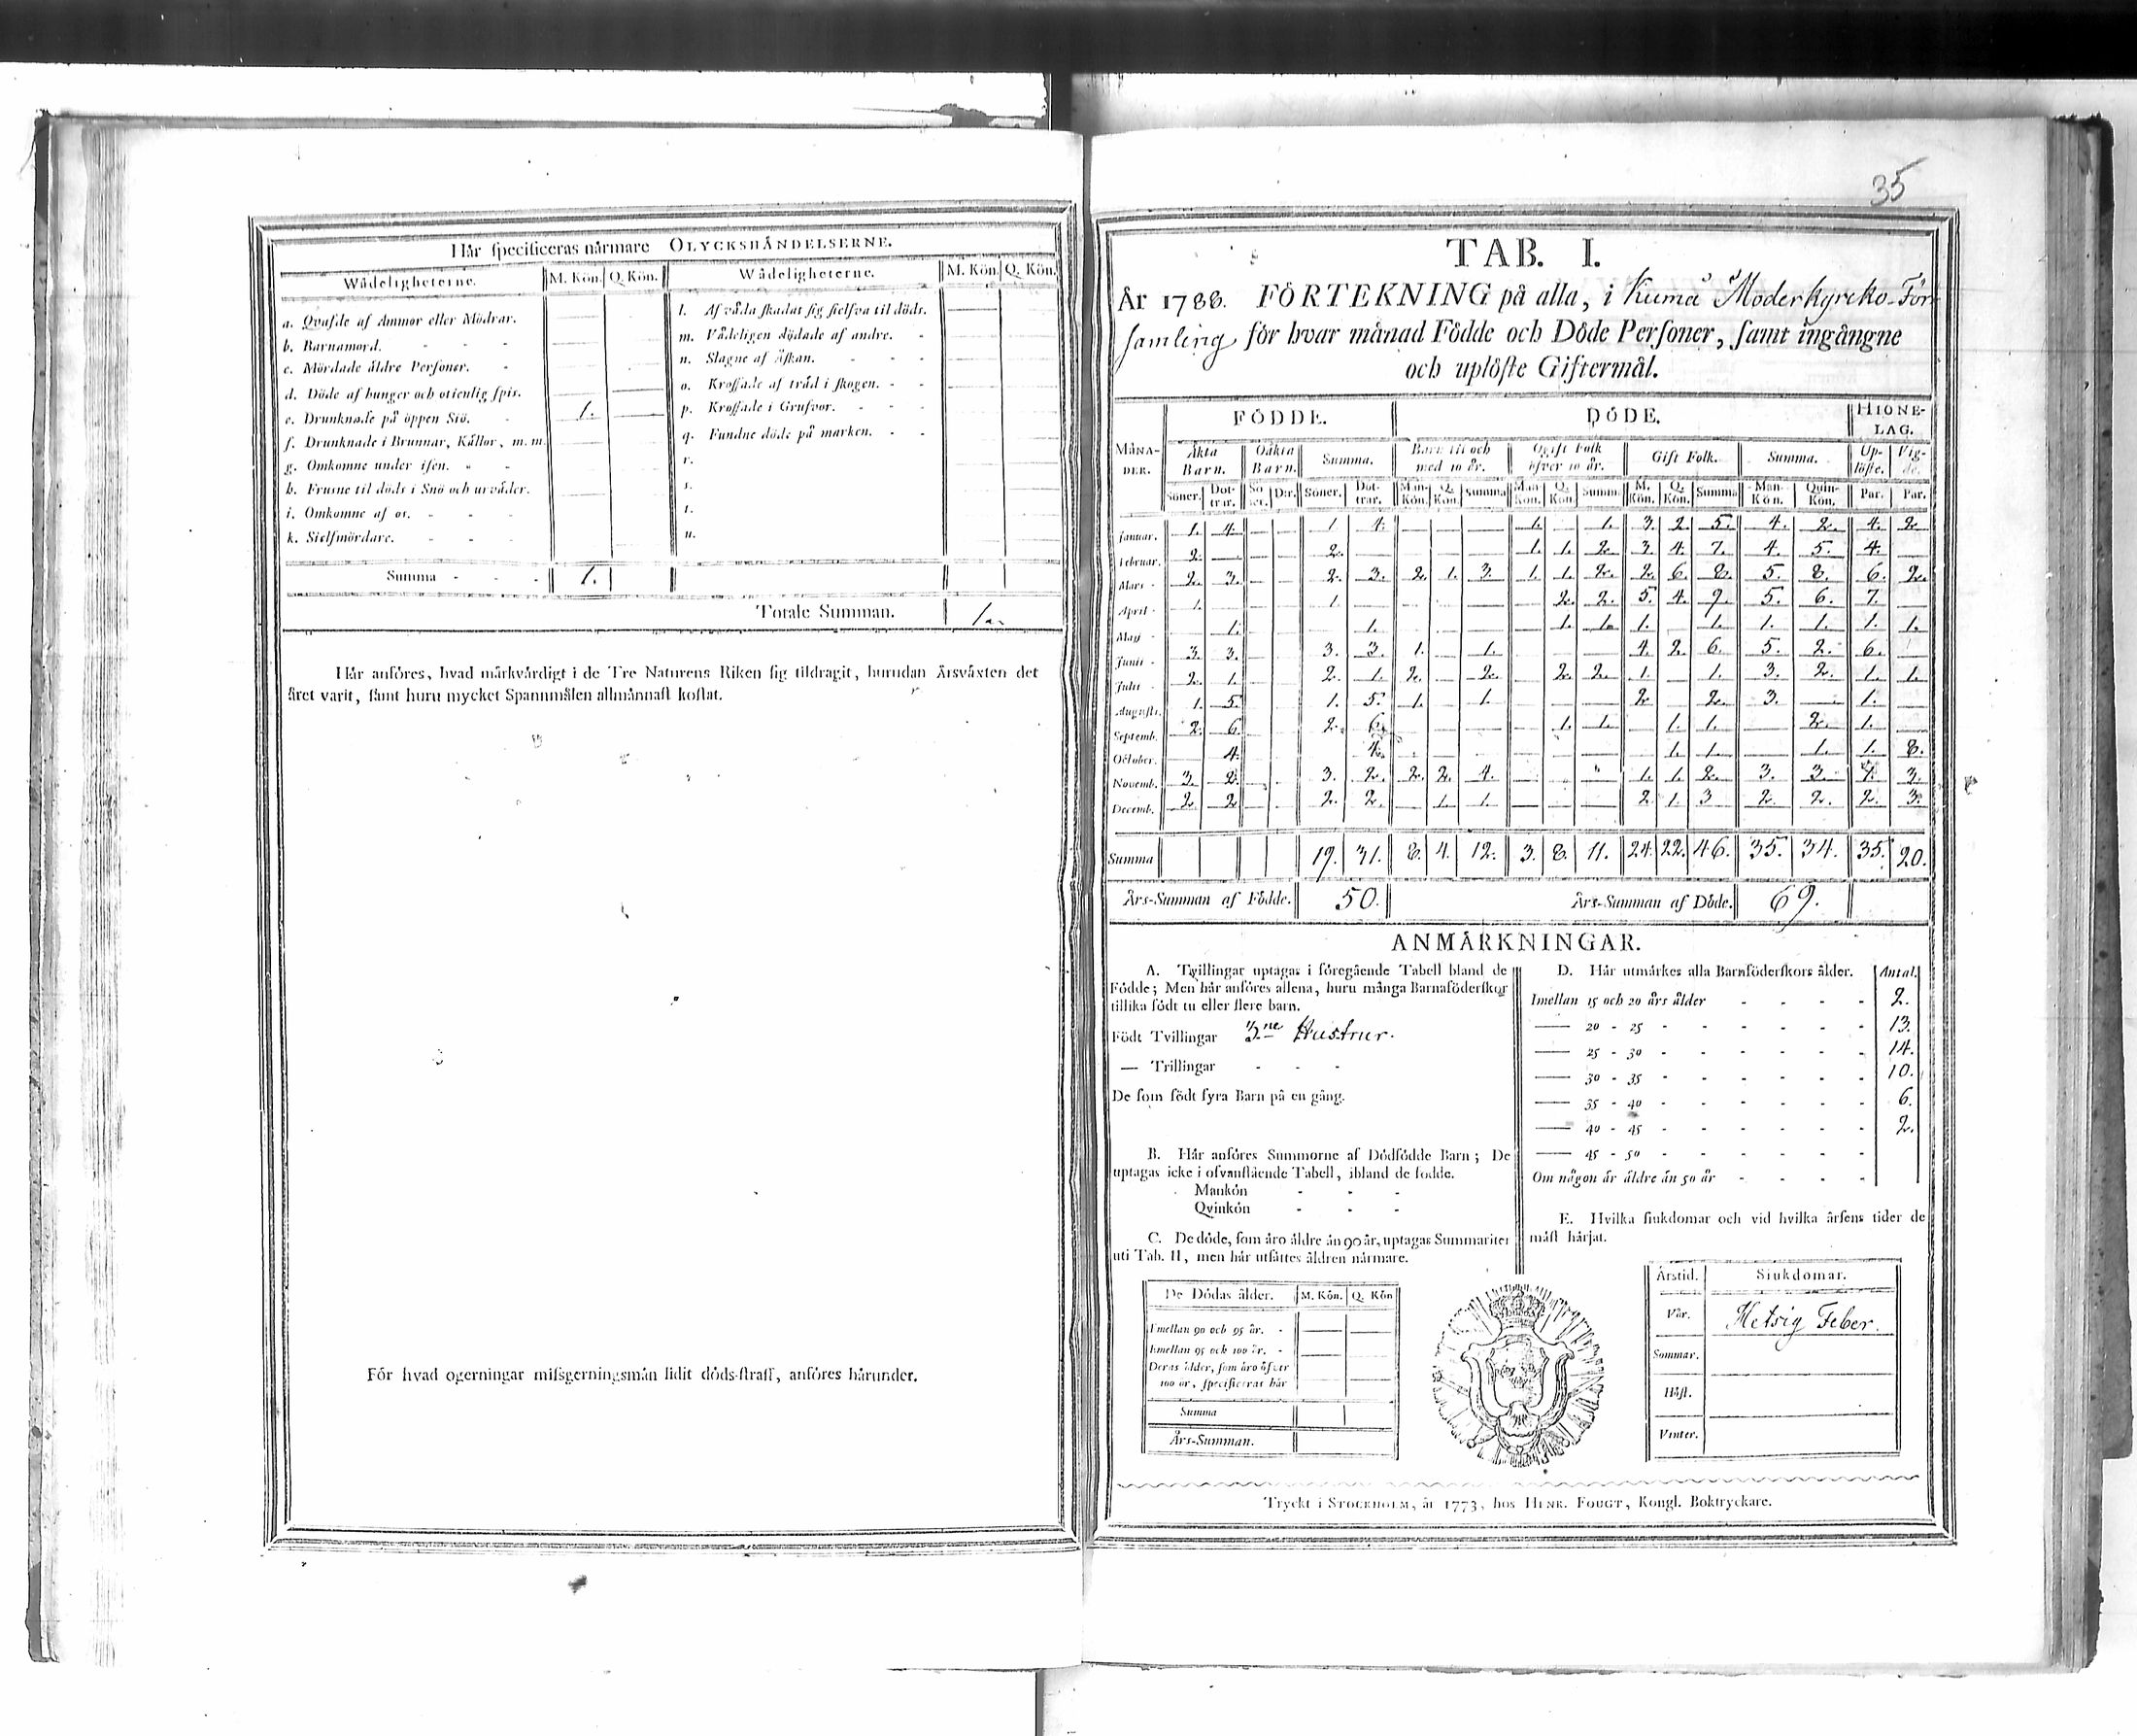 Här specificeras närmare OLYCKSHÄNDELSERNE.
Wådeligheterne. M. Kön. Q. Kön. Wådeligheterne. M. Kön. Q. Kön.
a. Qvafde af Ammor eller Mödrar.
b. Barnamord.
c. Mördade äldre Personer.
d. Döde af hunger och otienlig spis.
e. Drunknade på öppen Siö. 1. —
f. Drunknade i Brunnar, Källor, m. m.
g. Omkomne under isen.
h. Frusne til döds i Snö och urväder.
i. Omkomne af os.
k. Sielfmördare.
l. Af våda skadat sig sielfva til döds.
m. Vådeligen dödade af andre.
n. Slagne af Åskan.
o. Krossade af träd i skogen.
p. Krossade i Grufvor.
q. Fundne döde på marken.
r.
s.
t.
u.
Summa 1.
Totale Summan. 1
Här anföres, hvad märkvärdigt i de Tre Naturens Riken sig tildragit, hurudan Årsväxten det
året varit, samt huru mycket Spannmålen allmännast kostat.
För hvad ogerningar missgerningsmän lidit döds-straff, anföres härunder.
35
TAB. I.
År 1788. FÖRTEKNING på alla, i Kumå Moderkyrko-För-
samling för hvar månad Födde och Döde Personer, samt ingångne
och uplöste Giftermål.
MÅNA-DER. FÖDDE. DÖDE. HIONE-LAG.
Äkta Barn. Oäkta Barn. Summa. Barn til och med 10 år. Ogift Folk öfver 10 år. Gift Folk. Summa. Up-löste. Vig-de.
Söner. Döt-trar. Sö-ner. D:r. Söner. Döt-trar. Man-Kön. Q. Kön. Summa Man-Kön. Q. Kön. Summa M. Kön. Q. Kön. Summa Man-Kön. Quin-Kön. Par. Par.
Januar. 1. 4. 1 4. — — — 1. 1. 3. 2 5. 4. 2. 4. 2
Februar. 2. — 2. — — — 1. 1. 2 3. 4. 7. 4. 5. 4. —
Mars 2. 3. 2. 3. 2. 1. 3. 1. 1. 2. 2. 6. 8. 5. 8. 6. 2.
April 1. 1. 2. 2. 5. 4. 9. 5. 6. 7.
Maji 1. 1. 1. 1. 1. 1. 1. 1. 1. 1.
Junii 3. 3. 3. 3. 1. 1. 4. 2. 6. 5. 2. 6.
Julii 2. 1. 2. 1. 2. 2. 2. 2. 1. 1. 3. 2. 1. 1.
Augusti. 1. 5. 1. 5. 1. 1. 2 2. 3. 1.
Septemb. 2. 6. 2. 6. 1. 1. 1. 1. 2. 1.
October. 4. 4. 1. 1. 1. 1. 8.
Novemb. 3. 2. 3. 2. 2. 2. 4. 1. 1. 2. 3. 3. 1. 3.
Decemb. 2 2 2. 2. 1. 1. 2. 1. 3 2. 2. 2. 3.
Summa 19. 31. 8. 4. 12. 3. 8. 11. 24. 22. 46. 35. 34. 35. 20.
Års-Summan af Födde. 50. Års-Summan af Döde. 69.
ANMÄRKNINGAR.
A. Tvillingar uptagas i föregående Tabell bland de
Födde; Men här anföres allena, huru många Barnaföderskor
tillika födt tu eller flere barn.
Födt Tvillingar 3ne Hustrur.
— Trillingar
De som födt fyra Barn på en gång.
B. Här anföres Summorne af Dödfödde Barn; De
uptagas icke i ofvanstående Tabell, ibland de födde.
Mankön
Qvinkön
C. De döde, som äro äldre än 90 år, uptagas Summariter
uti Tab. II, men här utsättes åldren närmare.
De Dödas ålder. M. Kön. Q. Kön
Emellan 90 och 95 år.
Emellan 95 och 100 år.
Deras ålder, som äro öfver
100 år, specificeras här
Summa
Års-Summan.
D. Här utmärkes alla Barnföderskors ålder. Antal.
Imellan 15 och 20 års ålder 2.
— 20 - 25 13.
— 25 - 30 14.
— 30 - 35 10.
— 35 - 40 6.
— 40 - 45 2.
— 45 - 50
Om någon är äldre än 50 år
E. Hvilka siukdomar och vid hvilka årsens tider de
mäst härjat.
Årstid. Siukdomar.
Vår. Hetsig Feber.
Sommar.
Höst.
Vinter.
Tryckt i STOCKHOLM, år 1773, hos HENR. FOUGT, Kongl. Boktryckare.